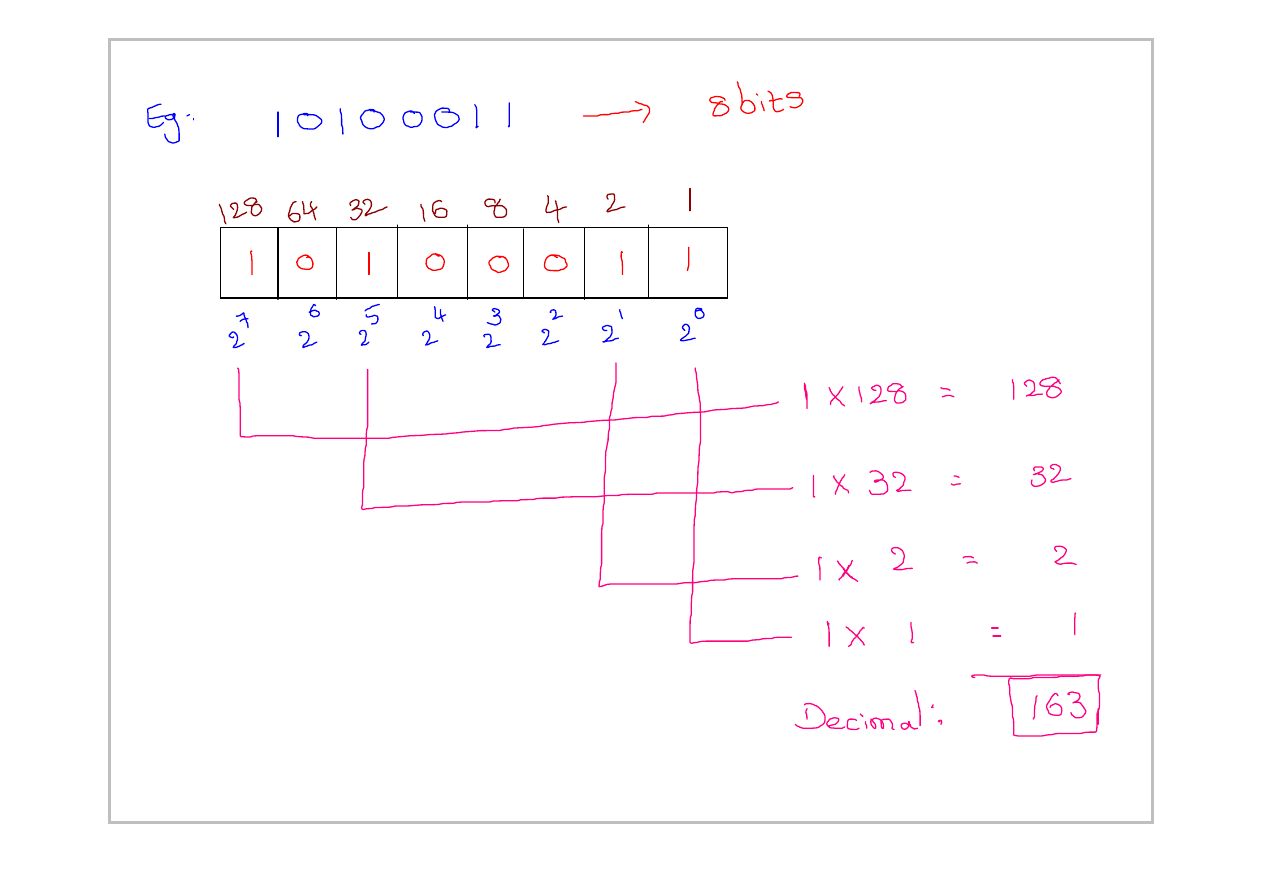 Eg:- 10100011 → 8bits
128 64 32 16 8 4 2 1
1 0 1 0 0 0 1 1
2⁷ 2⁶ 2⁵ 2⁴ 2³ 2² 2¹ 2⁰
1 X 128 = 128
1 X 32 = 32
1 X 2 = 2
1 X 1 = 1
Decimal: 163